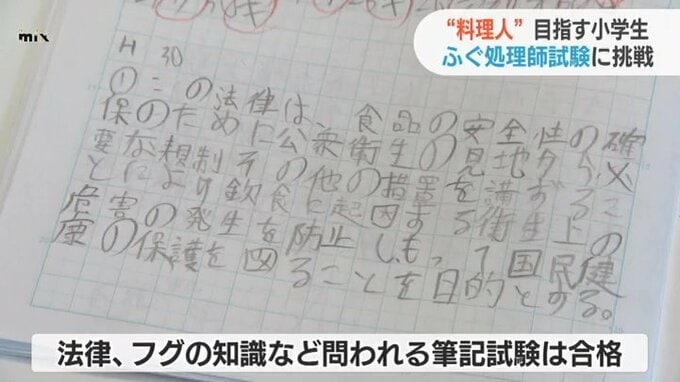 mix
“料理人” 目指す小学生
ふぐ処理師試験に挑戦
H 30
① この法律は、食品の安全性の確
保のために公衆衛生の見地から必
要な規制その他の措置を講ずるこ
とにより飲食に起因する衛生上の
危害の発生を防止し、もって国民の健
康の保護を図ることを目的とする。
法律、フグの知識など問われる筆記試験は合格